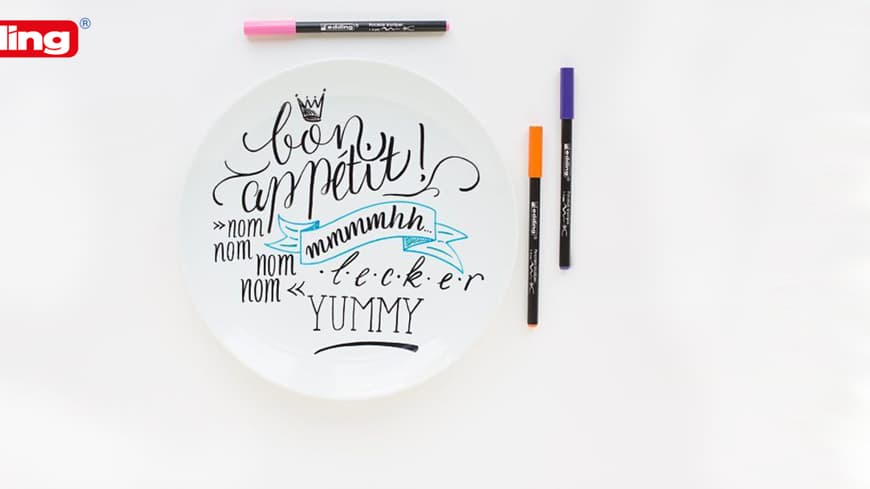 ling®
edding
edding
edding
bon
appétit!
»nom
nom
nom
nom«
mmmmhh...
·l·e·c·k·e·r
YUMMY